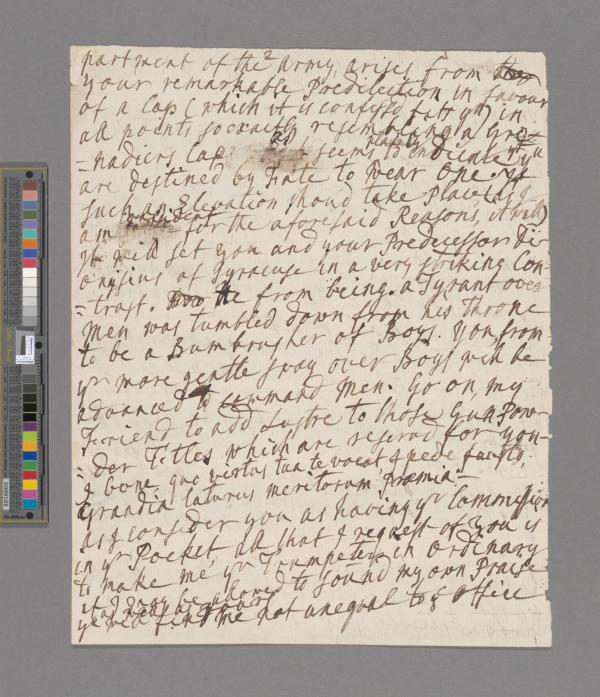 partment of the army, arises from the
your remarkable Predilection in favour
of a Cap (which it is confessd fitts yu) in
all points so exactly resembling a Gre-
-nadiers Cap as seems plainly to indicate yu
are destined by Fate to wear One. If
such an Elevation shoud take Place (as I
am confident for the aforesaid Reasons, it will)
It will set you and your Predecessor Di-
onysius of Syracuse in a very striking Con-
-trast. He from being a Tyrant over
Men was tumbled down from his Throne
to be a Bumbrusher of Boys. You from
yr more gentle sway over Boys will be
advanced to command Men. Go on, my
Friend to add Lustre to those Gun Pow-
-der Titles which are reservd for you-
I bone, quo virtus tua te vocat, I pede fausto,
Grandia laturus meritorum præmia.-
As I consider you as having yr Commission
in yr Pocket, all that I request of you is
to make me yr Trumpeter in Ordinary
& if I may be allowed to sound my own Praise
you will find me not unequal to ye Office